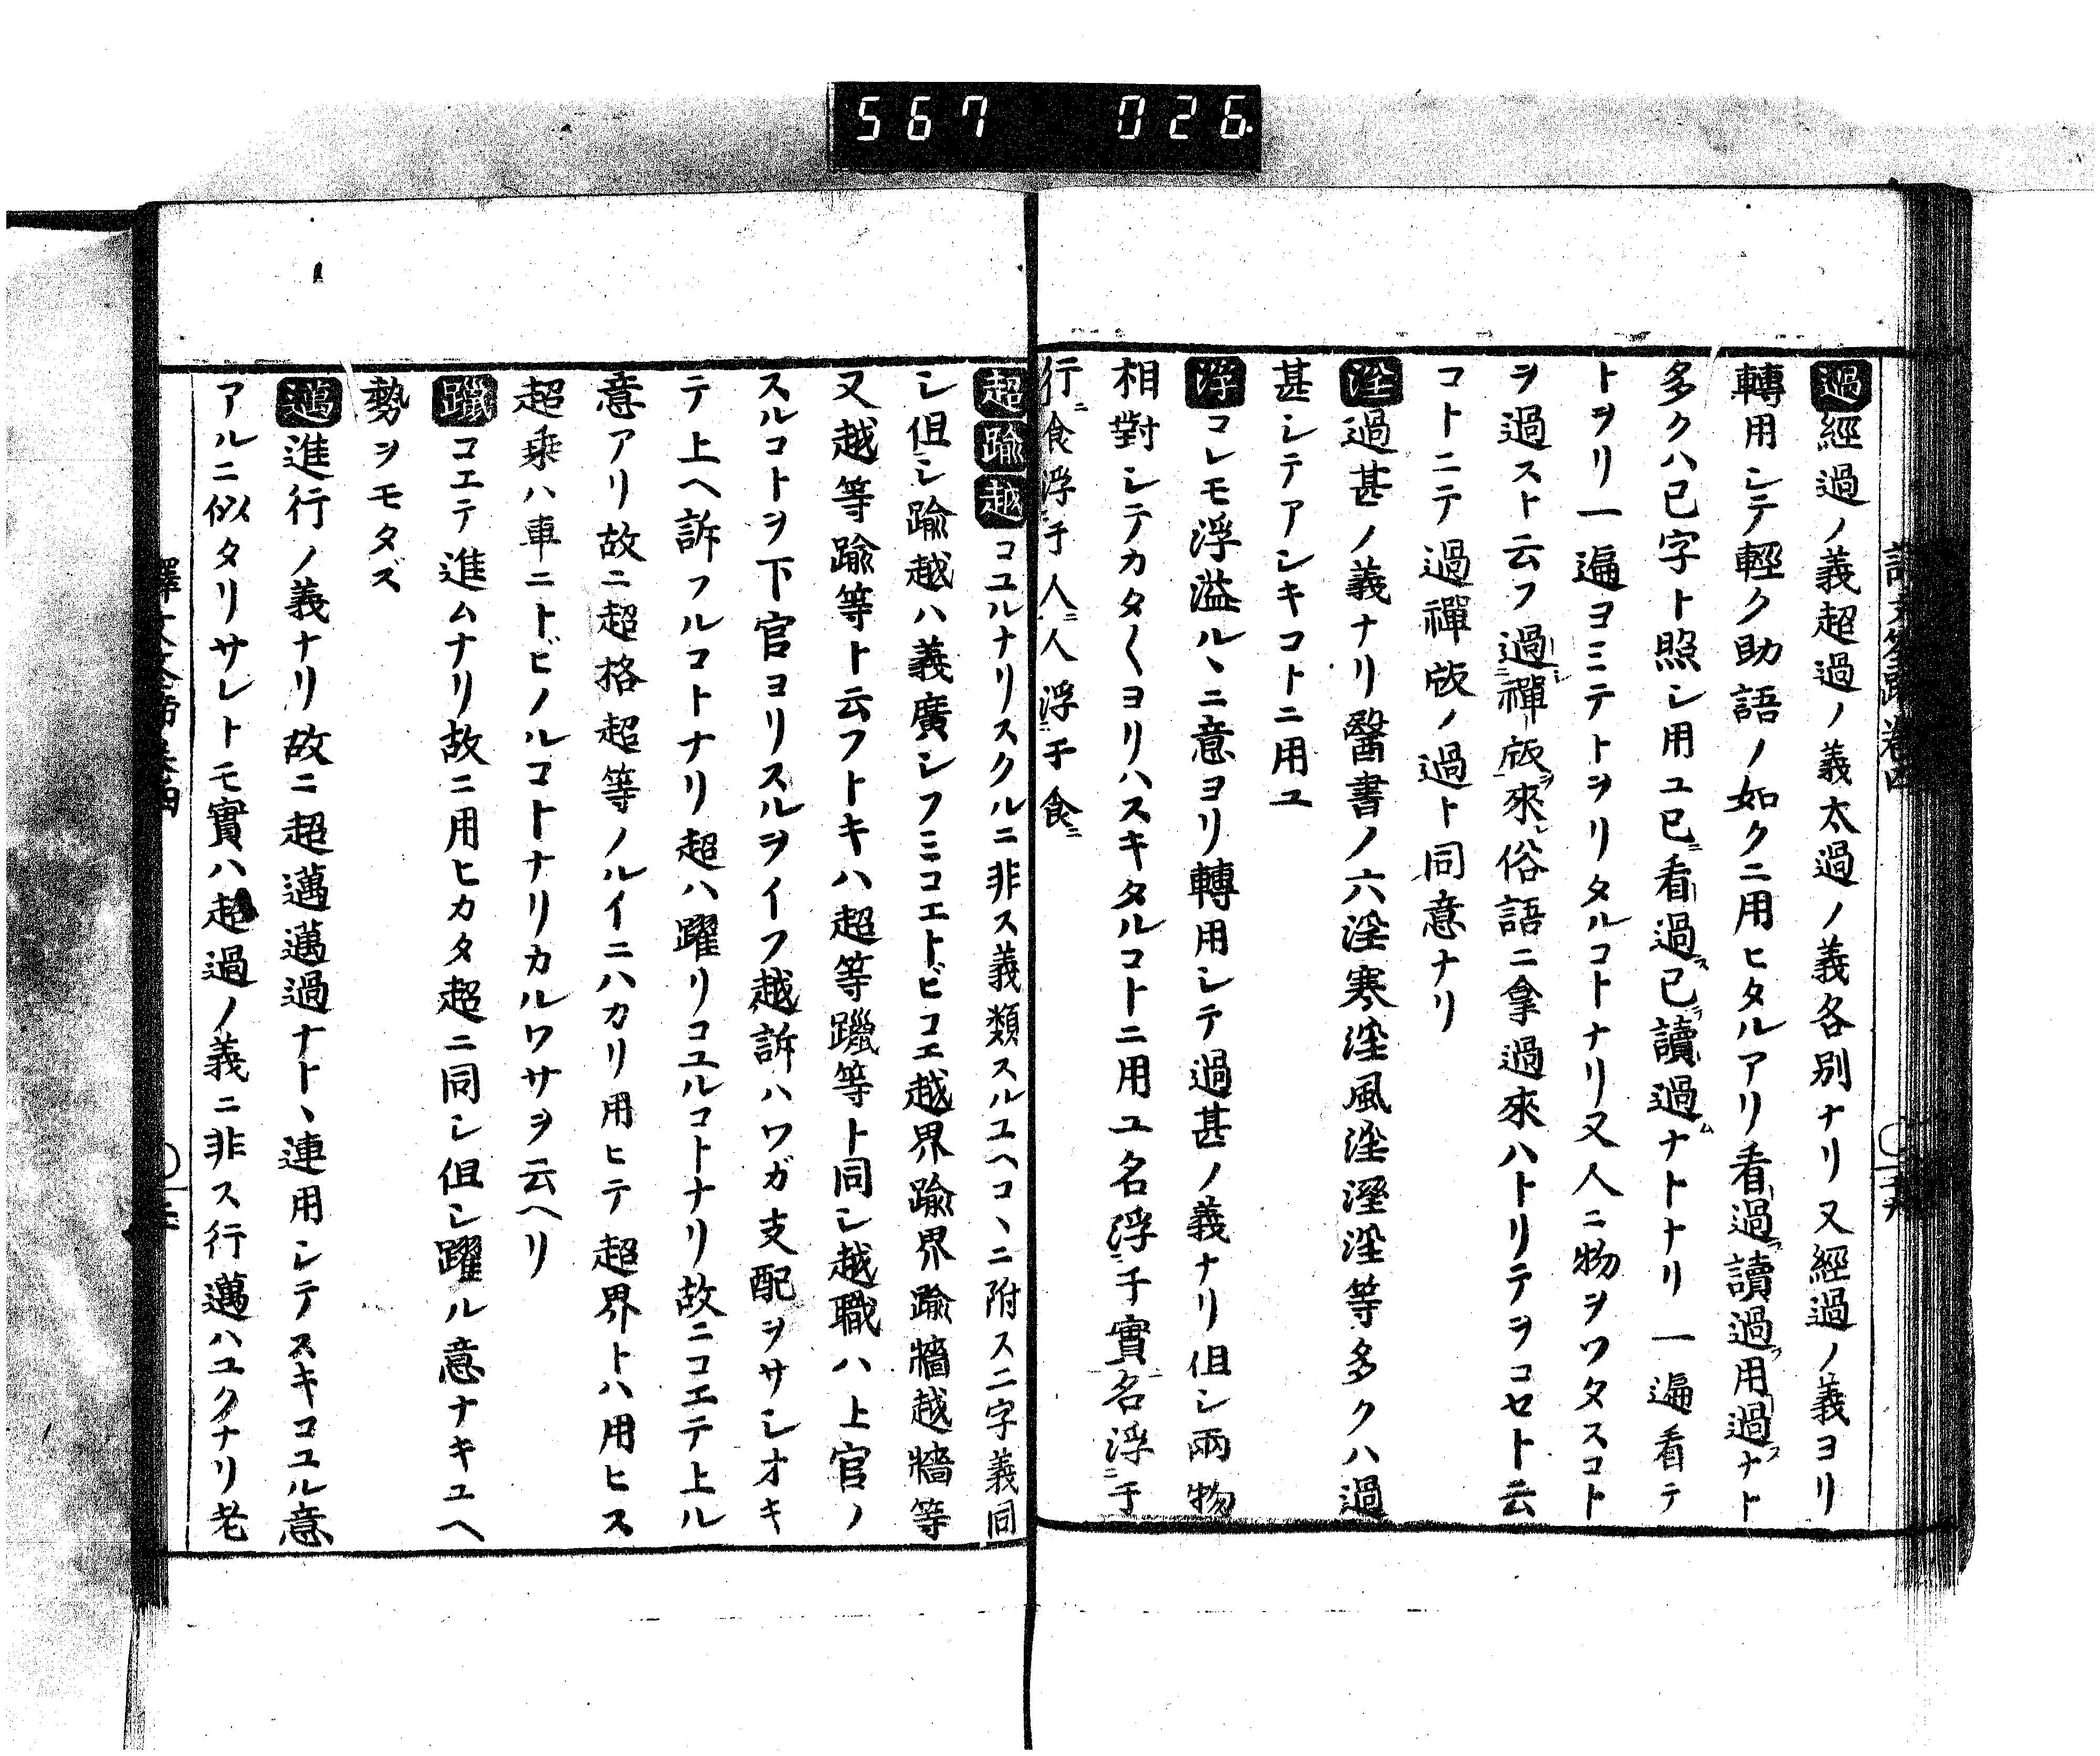 567 026
過 經過ノ義超過ノ義太過ノ義各別ナリ又經過ノ義ヨリ
轉用シテ輕ク助語ノ如クニ用ヒタルアリ看過讀過用過ナト
多クハ已字ト照シ用ユ已ニ看過ス已ニ讀過ムナトナリ一遍看テ
トヲリ一遍ヨミテトヲリタルコトナリ又人ニ物ヲワタスコト
ヲ過スト云フ過禪版來俗語ニ拿過來ハトリテヲコセト云
コトニテ過禪版ノ過ト同意ナリ
淫 過甚ノ義ナリ醫書ノ六淫寒淫風淫溼淫等多クハ過
甚シテアシキコトニ用ユ
浮 コレモ浮溢ル丶ニ意ヨリ轉用シテ過甚ノ義ナリ但シ兩物
相對シテカタ〱ヨリハスキタルコトニ用ユ名浮于實名浮于
行食浮于人人浮于食
超 踰 越 コユルナリスクルニ非ス義類スルユヘコ丶ニ附ス二字義同
シ但シ踰越ハ義廣シフミコエトビコエ越界踰界踰牆越牆等
又越等踰等ト云フトキハ超等躐等ト同シ越職ハ上官ノ
スルコトヲ下官ヨリスルヲイフ越訴ハワガ支配ヲサシオキ
テ上ヘ訴フルコトナリ超ハ躍リコユルコトナリ故ニコエテ上ル
意アリ故ニ超格超等ノルイニハカリ用ヒテ超界トハ用ヒス
超乗ハ車ニトビノルコトナリカルワサヲ云ヘリ
躐 コエテ進ムナリ故ニ用ヒカタ超ニ同シ但シ躍ル意ナキユヘ
勢ヲモタズ
邁 進行ノ義ナリ故ニ超邁邁過ナト丶連用シテスキコユル意
アルニ似タリサレトモ實ハ超過ノ義ニ非ス行邁ハユクナリ老